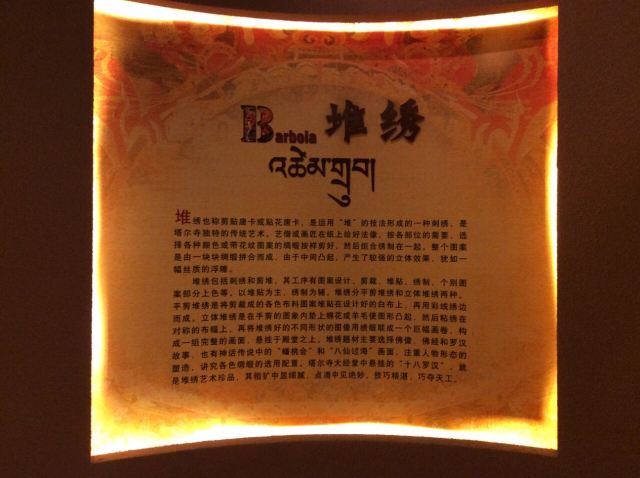 Barbola 堆绣
འཚེམ་གྲུབ།
堆绣也称剪贴唐卡或贴花唐卡，是运用“堆”的技法形成的一种刺绣，是
塔尔寺独特的传统艺术。艺僧或画匠在纸上绘好法像，按各部位的需要，选
择各种颜色或带花纹图案的绸缎按样剪好，然后组合绣制在一起，整个图案
是由一块块绸缎拼合而成，由于中间凸起，产生了较强的立体效果，犹如一
幅丝质的浮雕。
堆绣包括刺绣和剪堆，其工序有图案设计、剪裁、堆贴、绣制，个别图
案部分上色等。以堆贴为主，绣制为辅。堆绣分平剪堆绣和立体堆绣两种。
平剪堆绣是将剪裁成的各色布料图案堆贴在设计好的白布上，再用彩线绣边
而成。立体堆绣是在平剪的图象内垫上棉花或羊毛使图形凸起，然后粘绣在
对称的布幅上，再将堆绣好的不同形状的图像用绣缎联成一个巨幅画卷，构
成一组完整的画面，悬挂于殿堂之上。堆绣题材主要选择佛像、佛经和罗汉
故事，也有神话传说中的“蟠桃会”和“八仙过海”画面，注重人物形态的
塑造，讲究各色绸缎的选用配置。塔尔寺大经堂中悬挂的“十八罗汉”，就
是堆绣艺术珍品，其粗犷中显细腻，点滴中见绝妙，技巧精湛，巧夺天工。